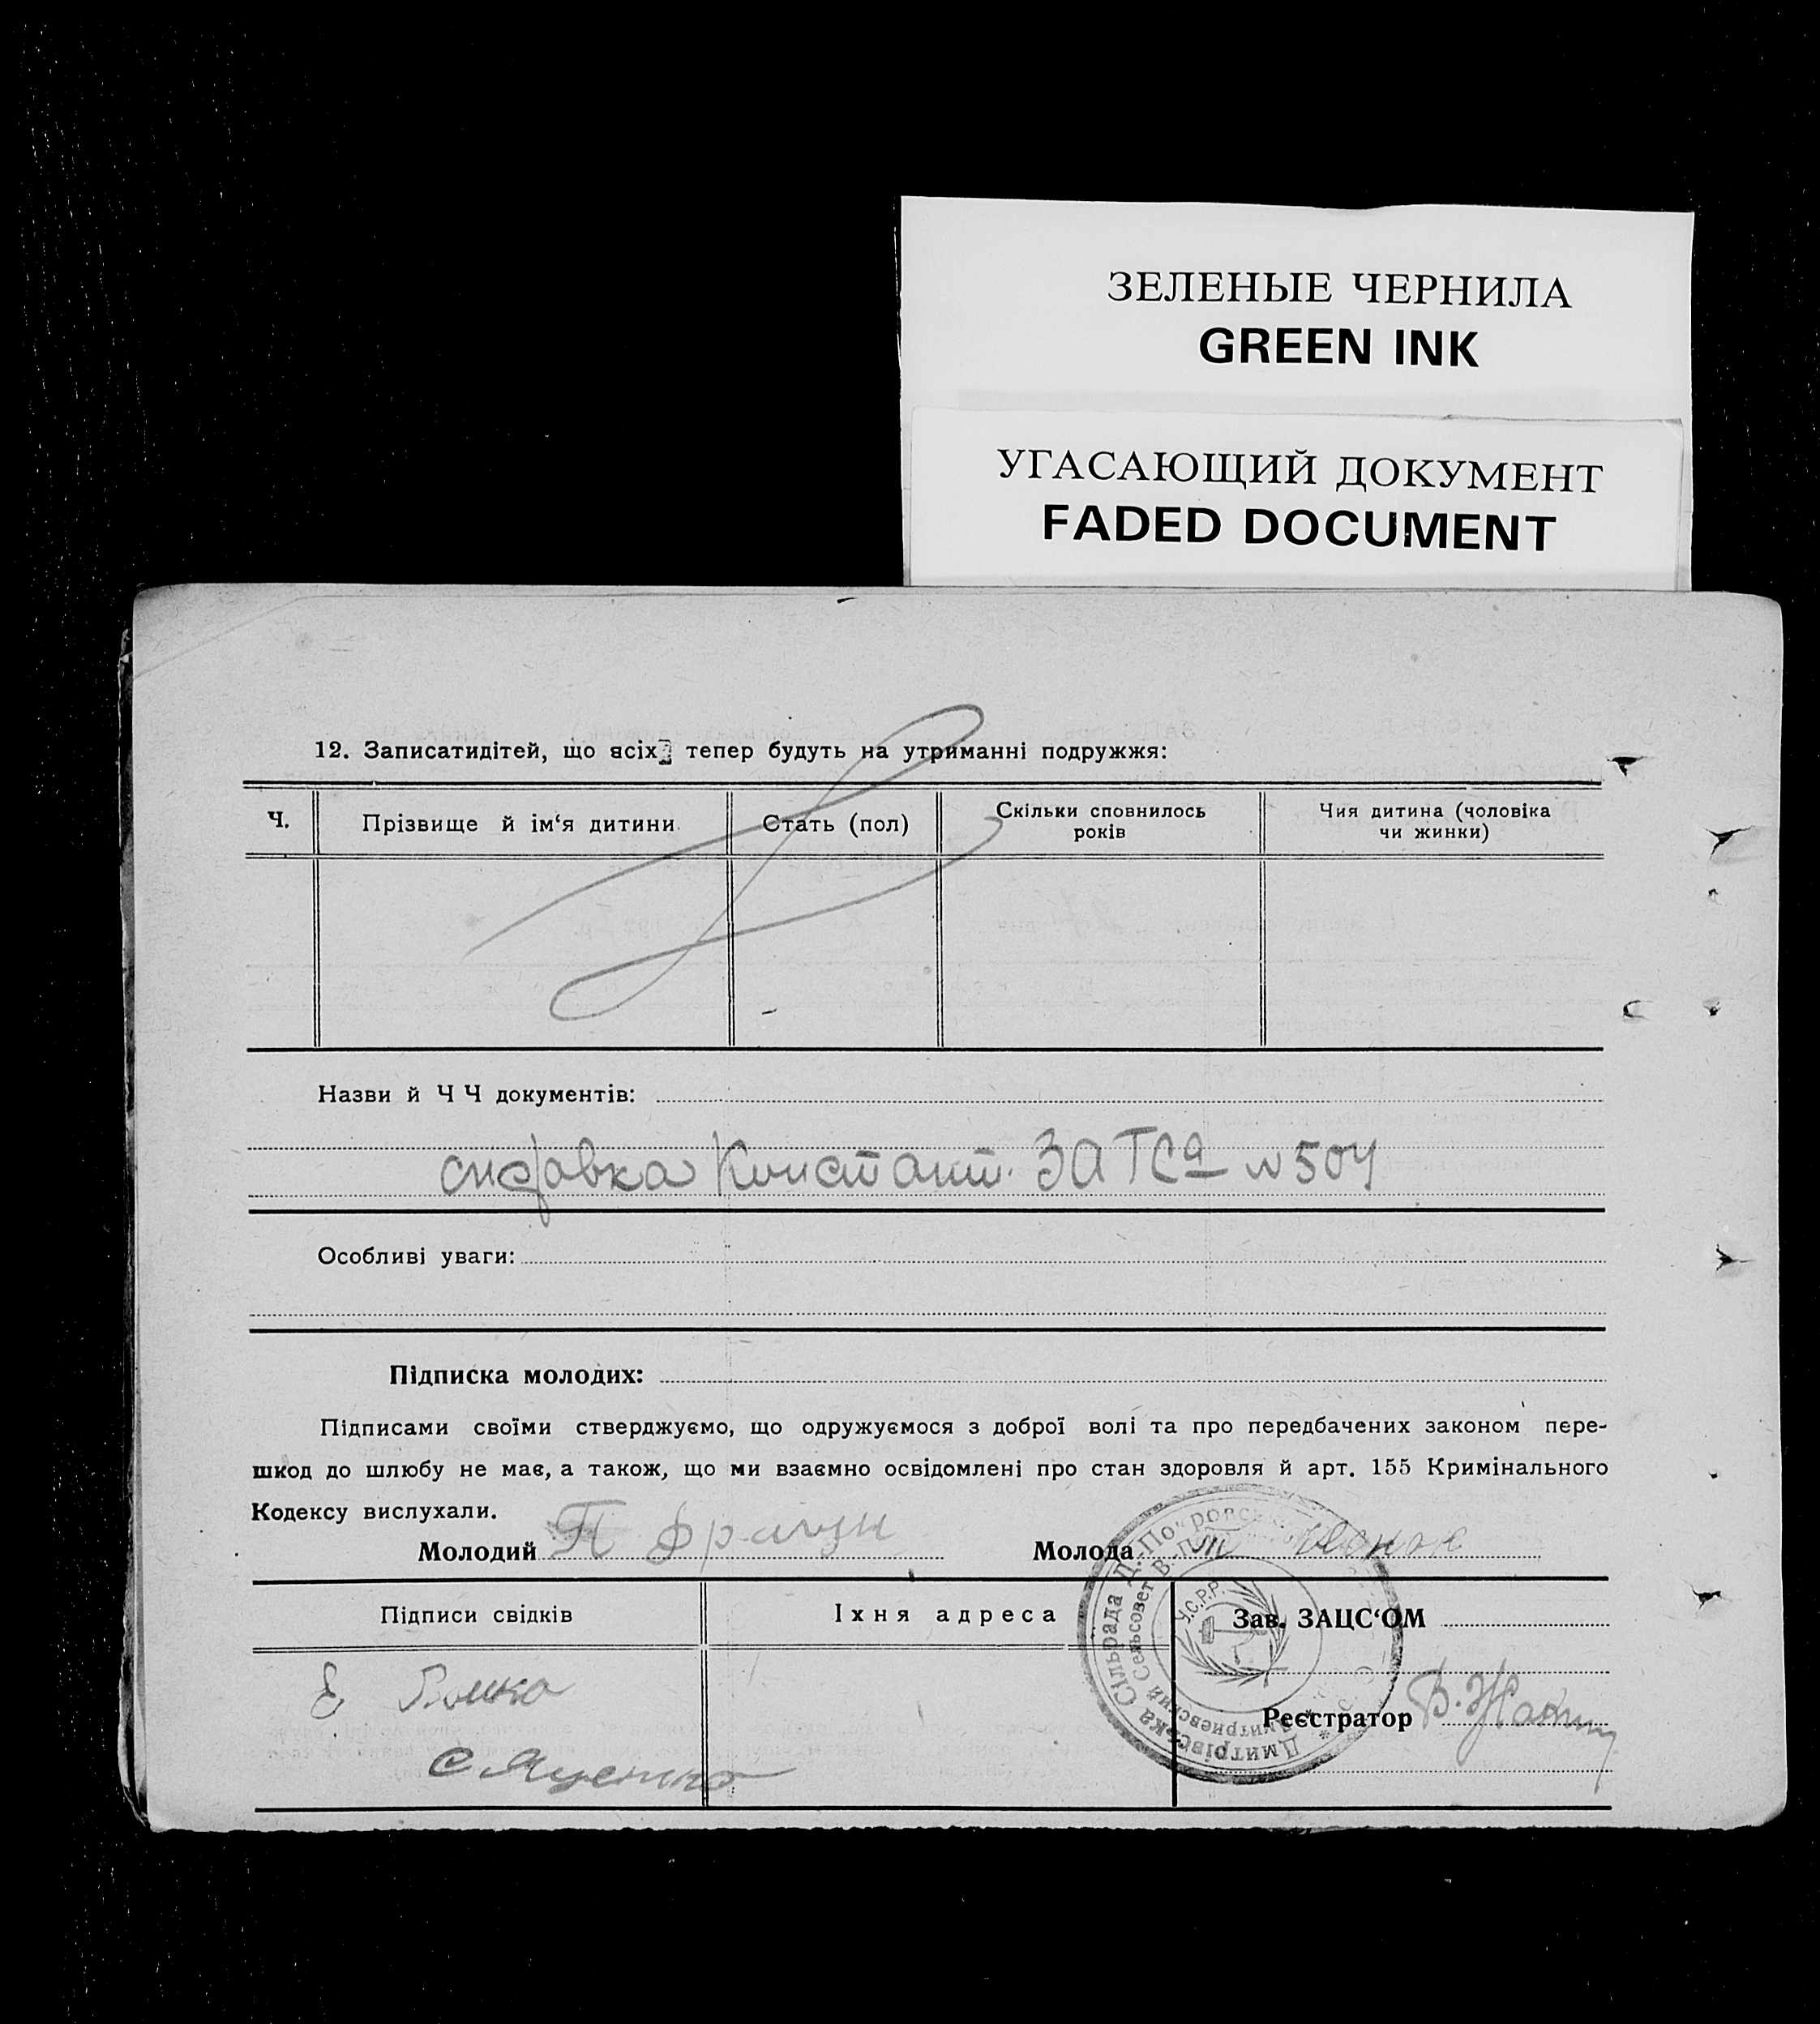 ЗЕЛЕНЫЕ ЧЕРНИЛА
GREEN INK
УГАСАЮЩИЙ ДОКУМЕНТ
FADED DOCUMENT
12. Записатидітей, що всіх тепер будуть на утриманні подружжя:
Ч. Прізвище й ім‘я дитини Стать (пол) Скільки сповнилось років Чия дитина (чоловіка чи жинки)
Назви й Ч Ч документів:
справка Констант. ЗАГСа № 504
Особливі уваги:
Підписка молодих:
Підписами своїми стверджуємо, що одружуємося з доброї волі та про передбачених законом пере-
шкод до шлюбу не має, а також, що ми взаємно освідомлені про стан здоровля й арт. 155 Кримінального
Кодексу вислухали.
Молодий П Молода
Підписи свідків Їхня адреса Зав. ЗАЦС‘ОМ
Е
С Яценко
Реєстратор В.
Дмитрівська Сільрада Д.-Покровс
Дмитриевский Сельсовет В.П.
У.С.Р.Р.